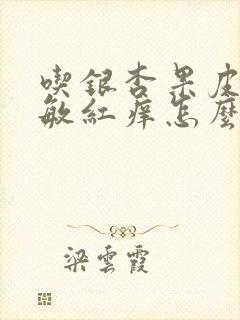 喫銀杏果皮
敏紅痒怎麼
梁雲霞